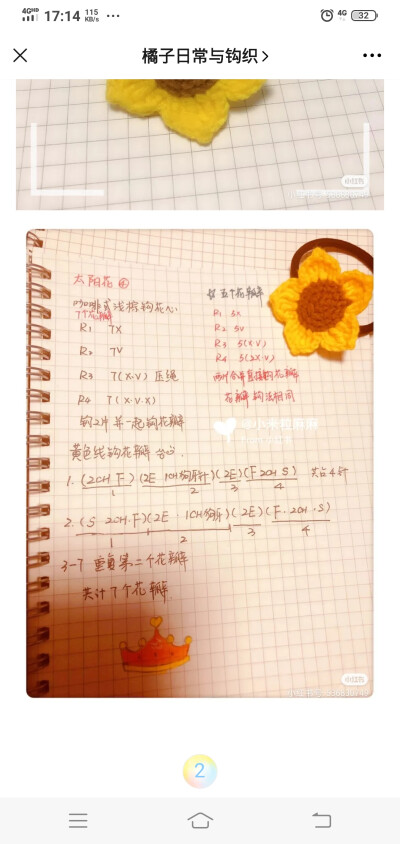 4GHD 17:14 115 KB/s ...
4G 32
橘子日常与钩织 >
小红书
太阳花
咖啡或浅棕钩花心
7个花瓣
R1 7X
R2 7V
R3 7(X·V) 压绳
R4 7(X·V·X)
钩2片并一起钩花瓣
黄色线钩花瓣
五个花瓣
R1 5X
R2 5V
R3 5(X V)
R4 5(2X·V)
两片合并直接钩花瓣
花瓣钩法相同
1. (2CH F)(2E 1CH狗牙针)(2E)(F 2CH S) 共占4针
1 2 3 4
2. (S 2CH·F)(2E · 1CH狗牙)(2E)(F·2CH·S)
1 2 3 4
3-7 重复第二个花瓣
共计7个花瓣
小红书
2